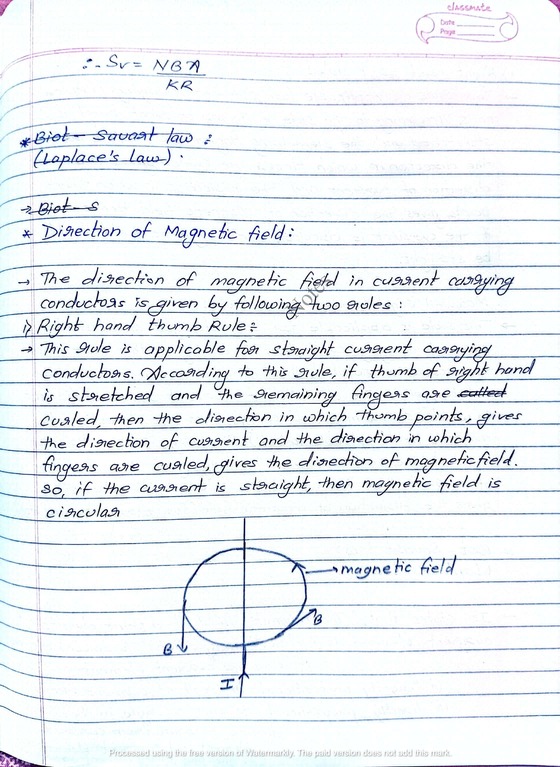 classmate
Date
Page
∴ Sv = NBA
KR
* Biot - Savart law :
(Laplace's Law) .
→ Biot - S
* Direction of Magnetic field :
→ The direction of magnetic field in current carrying
conductors is given by following two rules :
i) Right hand thumb Rule :
→ This rule is applicable for straight current carrying
conductors. According to this rule, if thumb of right hand
is stretched and the remaining fingers are called
curled, then the direction in which thumb points, gives
the direction of current and the direction in which
fingers are curled, gives the direction of magnetic field.
so, if the current is straight, then magnetic field is
circular
→ magnetic field
B
B
I
Processed using the free version of Watermarkly. The paid version does not add this mark.